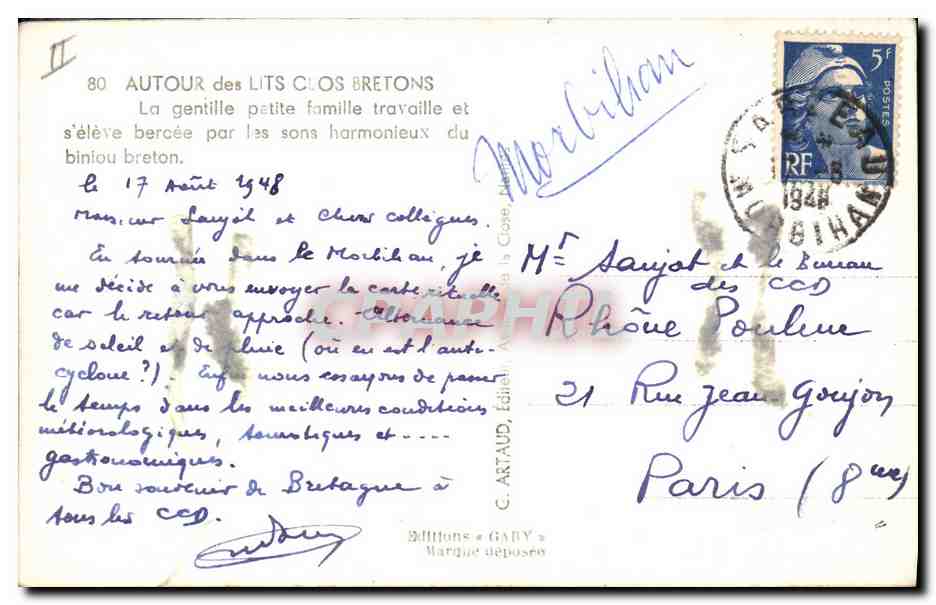 II
80 AUTOUR des LITS CLOS BRETONS
La gentille petite famille travaille et
s'élève bercée par les sons harmonieux du
biniou breton.
Morbihan
le 17 Août 1948
Monsieur Saujot et Chers collègues.
En tournée dans le Morbihan, je
me décide à vous envoyer la carte rituelle
car le retour approche. Alternance
de soleil et de pluie (où en est l'anti-
cyclone ?). Enfin nous essayons de passer
le temps dans les meilleures conditions
météorologiques, touristiques et ----
gastronomiques.
Bon souvenir de Bretagne à
tous les CCD.
C. ARTAUD, Éditeur, la Close, Nantes
CPAPHIL
Editions « GABY »
Marque déposée
5F
POSTES
RF
SARZEAU
1948
MORBIHAN
Mr Saujot et le Bureau
des CCD
Rhône Poulenc
21 Rue Jean Goujon
Paris (8me)